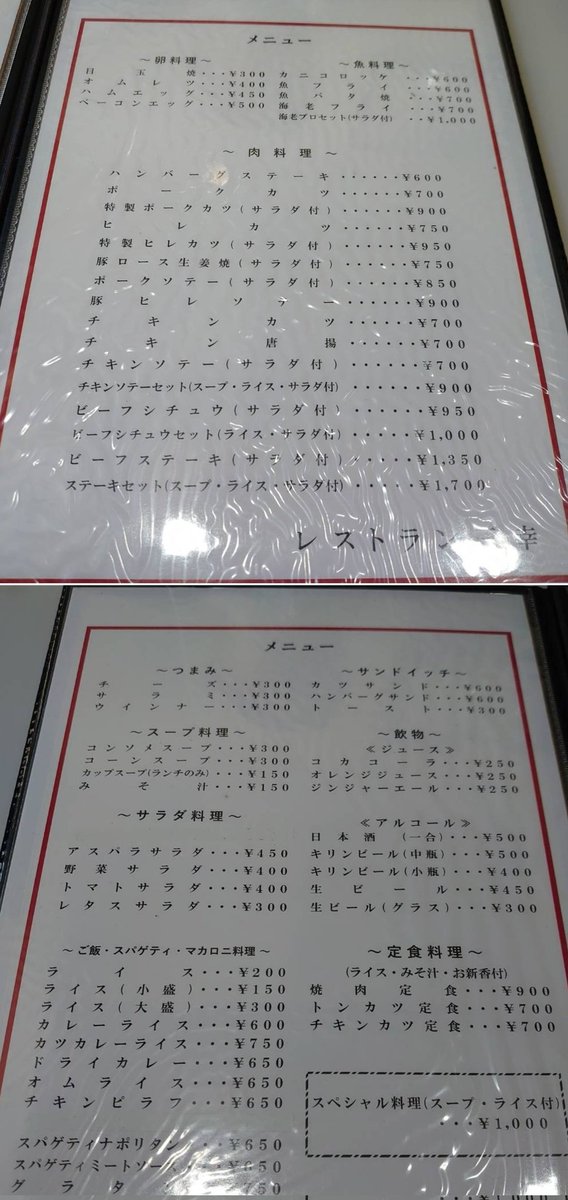 メニュー
～卵料理～
目玉焼・・・¥300
オムレツ・・・¥400
ハムエッグ・・・¥450
ベーコンエッグ・・・¥500
～魚料理～
カニコロッケ・・¥600
魚フライ・・・¥600
魚バタ焼・・・¥700
海老フライ・・・¥700
海老プロセット(サラダ付)・・¥1,000
～肉料理～
ハンバーグステーキ・・・・・・¥600
ポークカツ・・・・・・¥700
特製ポークカツ(サラダ付)・・・・・・¥900
ヒレカツ・・・・・・¥750
特製ヒレカツ(サラダ付)・・・・・・¥950
豚ロース生姜焼(サラダ付)・・・・・・¥750
ポークソテー(サラダ付)・・・・・・¥850
豚ヒレソテー・・・・・・¥900
チキンカツ・・・・・・¥700
チキン唐揚・・・・・・¥700
チキンソテー(サラダ付)・・・・・・¥700
チキンソテーセット(スープ・ライス・サラダ付)・・・・・・¥900
ビーフシチュウ(サラダ付)・・・・・・¥950
ビーフシチュウセット(ライス・サラダ付)・・・・・¥1,000
ビーフステーキ(サラダ付)・・・・・¥1,350
ステーキセット(スープ・ライス・サラダ付)・・・・・¥1,700
レストラン 幸
メニュー
～つまみ～
チーズ・・・¥300
サラミ・・・¥300
ウインナー・・・¥300
～サンドイッチ～
カツサンド・・・¥600
ハンバーグサンド・・・¥600
トースト・・・¥300
～スープ料理～
コンソメスープ・・・¥300
コーンスープ・・・¥300
カップスープ(ランチのみ)・・・¥150
みそ汁・・・¥150
～飲物～
≪ジュース≫
コカコーラ・・・¥250
オレンジジュース・・・¥250
ジンジャーエール・・・¥250
～サラダ料理～
アスパラサラダ・・・¥450
野菜サラダ・・・¥400
トマトサラダ・・・¥400
レタスサラダ・・・¥300
≪アルコール≫
日本酒(一合)・・・¥500
キリンビール(中瓶)・・・¥500
キリンビール(小瓶)・・・¥400
生ビール・・・¥450
生ビール(グラス)・・・¥300
～ご飯・スパゲティ・マカロニ料理～
ライス・・・¥200
ライス(小盛)・・・¥150
ライス(大盛)・・・¥300
カレーライス・・・¥600
カツカレーライス・・・¥750
ドライカレー・・・¥650
オムライス・・・¥650
チキンピラフ・・・¥650
スパゲティナポリタン・・・¥650
スパゲティミートソース・・・¥650
グラタ 750
～定食料理～
(ライス・みそ汁・お新香付)
焼肉定食・・・¥900
トンカツ定食・・・¥700
チキンカツ定食・・・¥700
スペシャル料理(スープ・ライス付)
・・・¥1,000